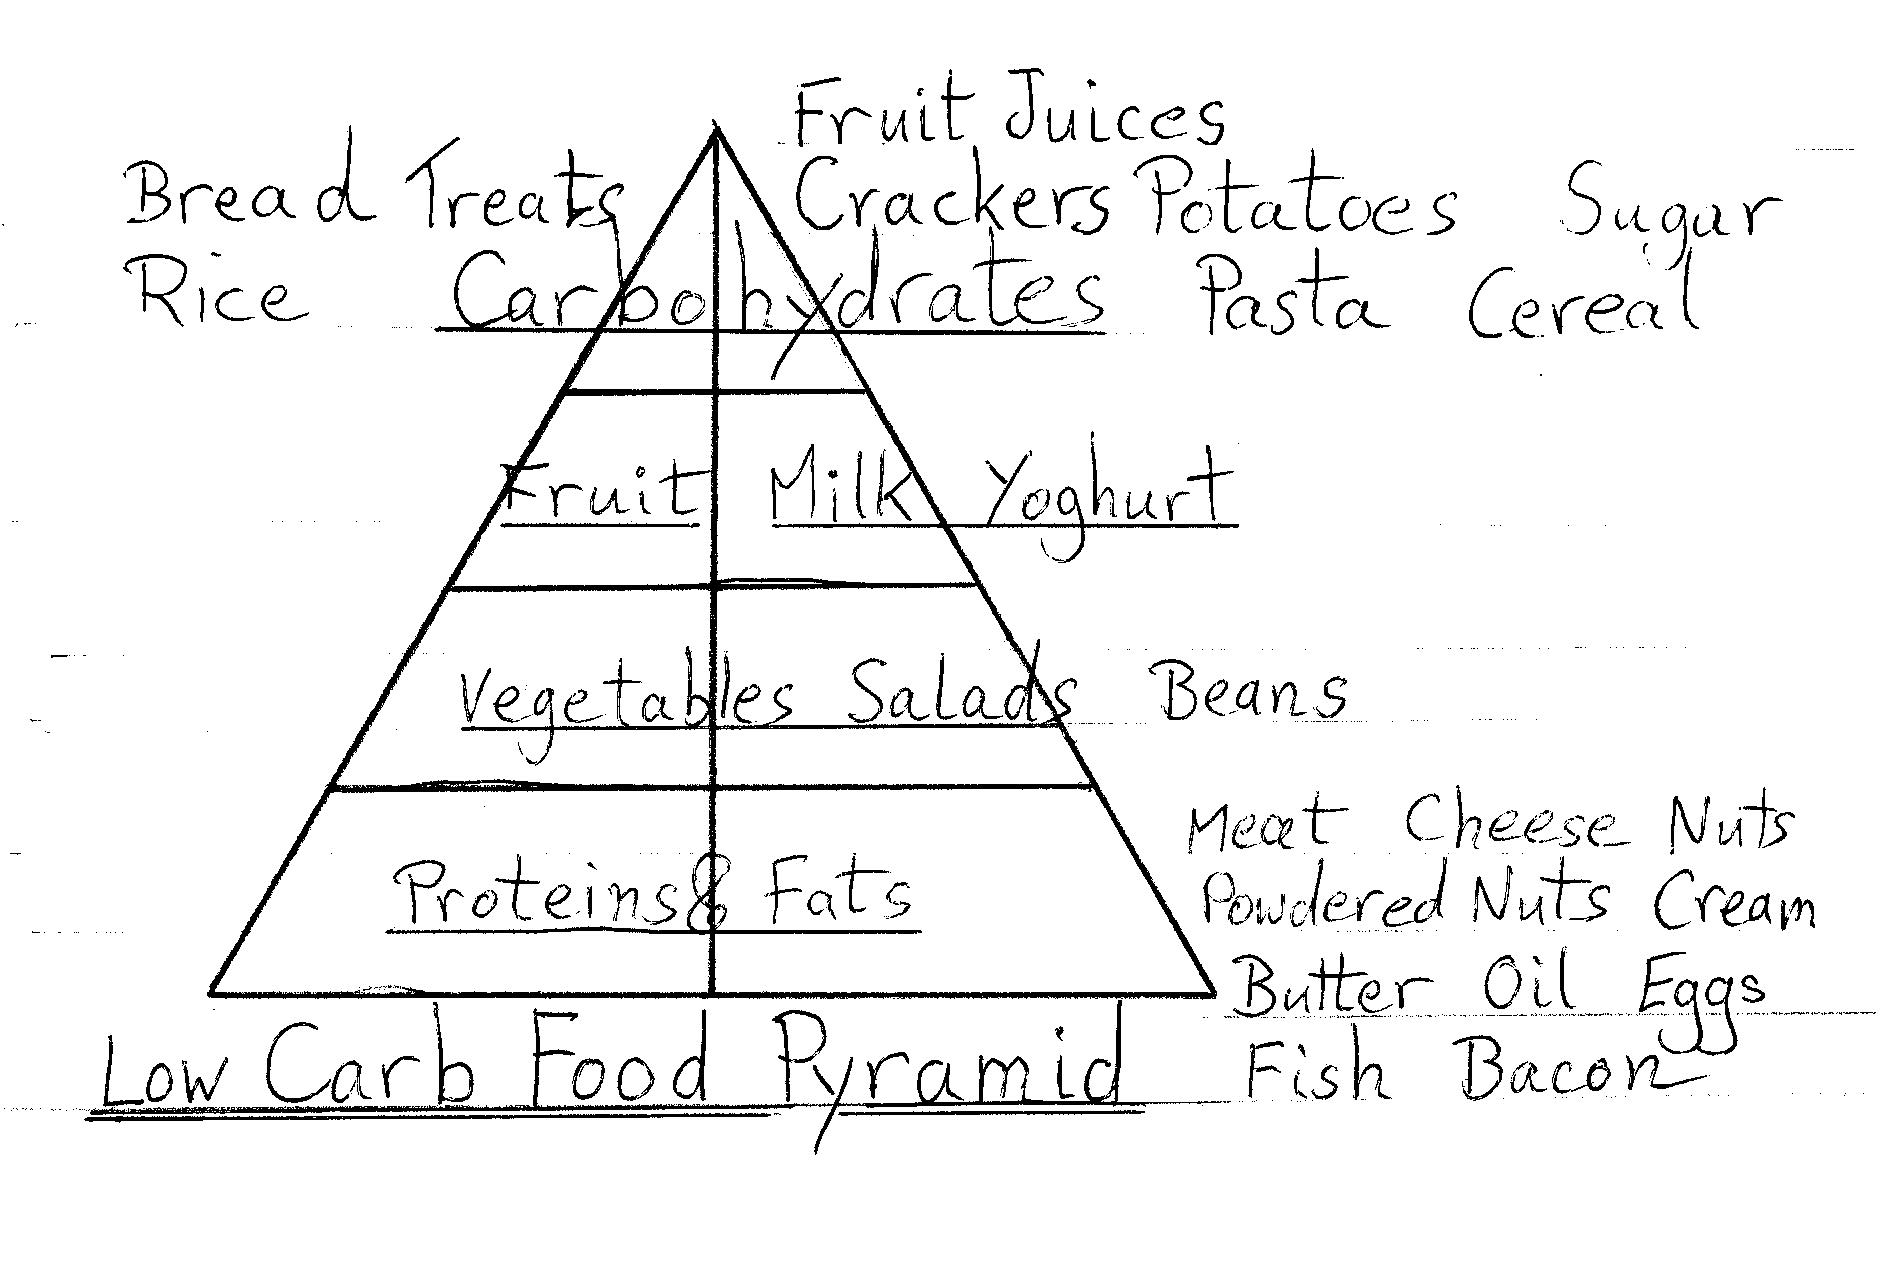 Fruit Juices
Bread Treats Crackers Potatoes Sugar
Rice Carbohydrates Pasta Cereal
Fruit Milk Yoghurt
Vegetables Salads Beans
Meat Cheese Nuts
Proteins & Fats Powdered Nuts Cream
Butter Oil Eggs
Low Carb Food Pyramid Fish Bacon